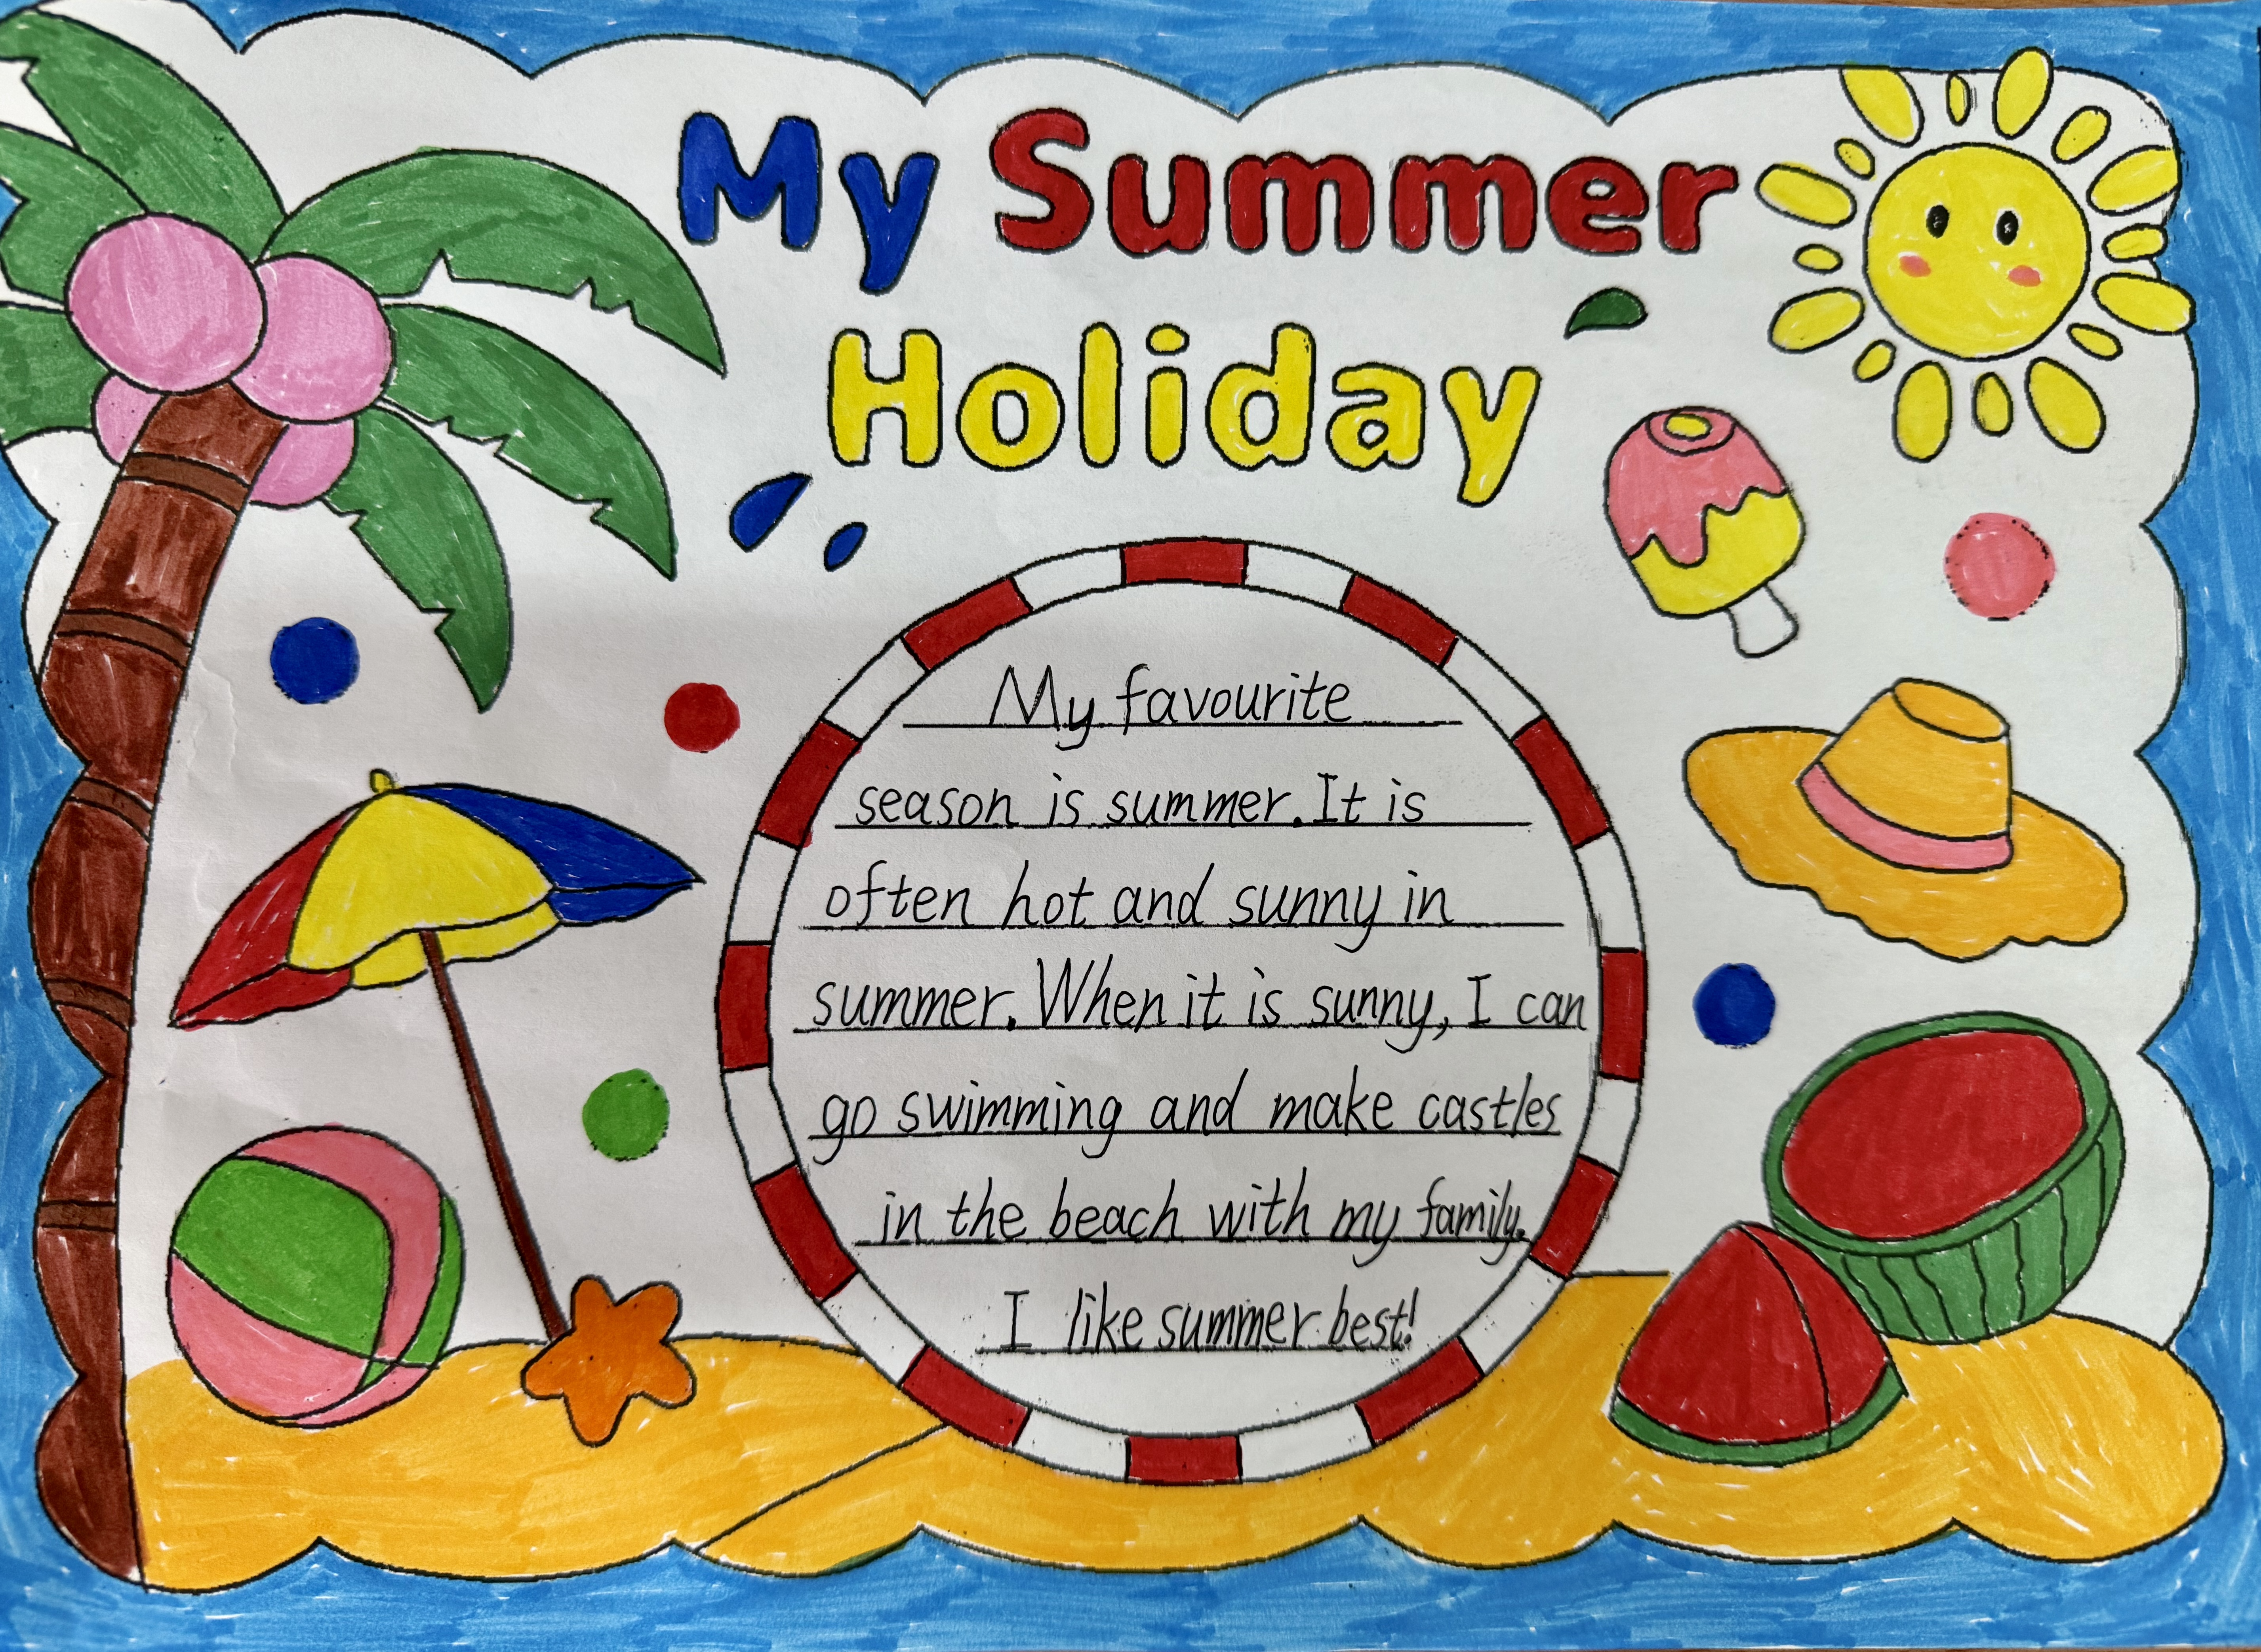 My Summer
Holiday
My favourite
season is summer. It is
often hot and sunny in
summer. When it is sunny, I can
go swimming and make castles
in the beach with my family.
I like summer best!